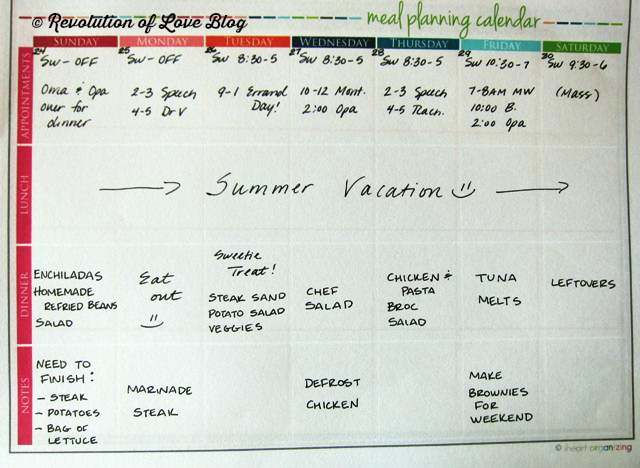 © Revolution of Love Blog
meal planning calendar
SUNDAY MONDAY TUESDAY WEDNESDAY THURSDAY FRIDAY SATURDAY
APPOINTMENTS
24
SW - OFF
Oma & Opa
over for
dinner
25
SW - OFF
2-3 Speech
4-5 Dr V
26
SW 8:30-5
9-1 Errand
Day!
27
SW 8:30-5
10-12 Mont.
2:00 Opa
28
SW 8:30-5
2-3 Speech
4-5 Teach.
29
SW 10:30-7
7-8AM MW
10:00 B.
2:00 Opa
30
SW 9:30-6
(Mass)
LUNCH
Summer Vacation
DINNER
ENCHILADAS
HOMEMADE
REFRIED BEANS
SALAD
Eat
out
Sweetie
Treat!
STEAK SAND
POTATO SALAD
VEGGIES
CHEF
SALAD
CHICKEN &
PASTA
BROC
SALAD
TUNA
MELTS
LEFTOVERS
NOTES
NEED TO
FINISH:
- STEAK
- POTATOES
- BAG OF
LETTUCE
MARINADE
STEAK
DEFROST
CHICKEN
MAKE
BROWNIES
FOR
WEEKEND
© iheart organizing